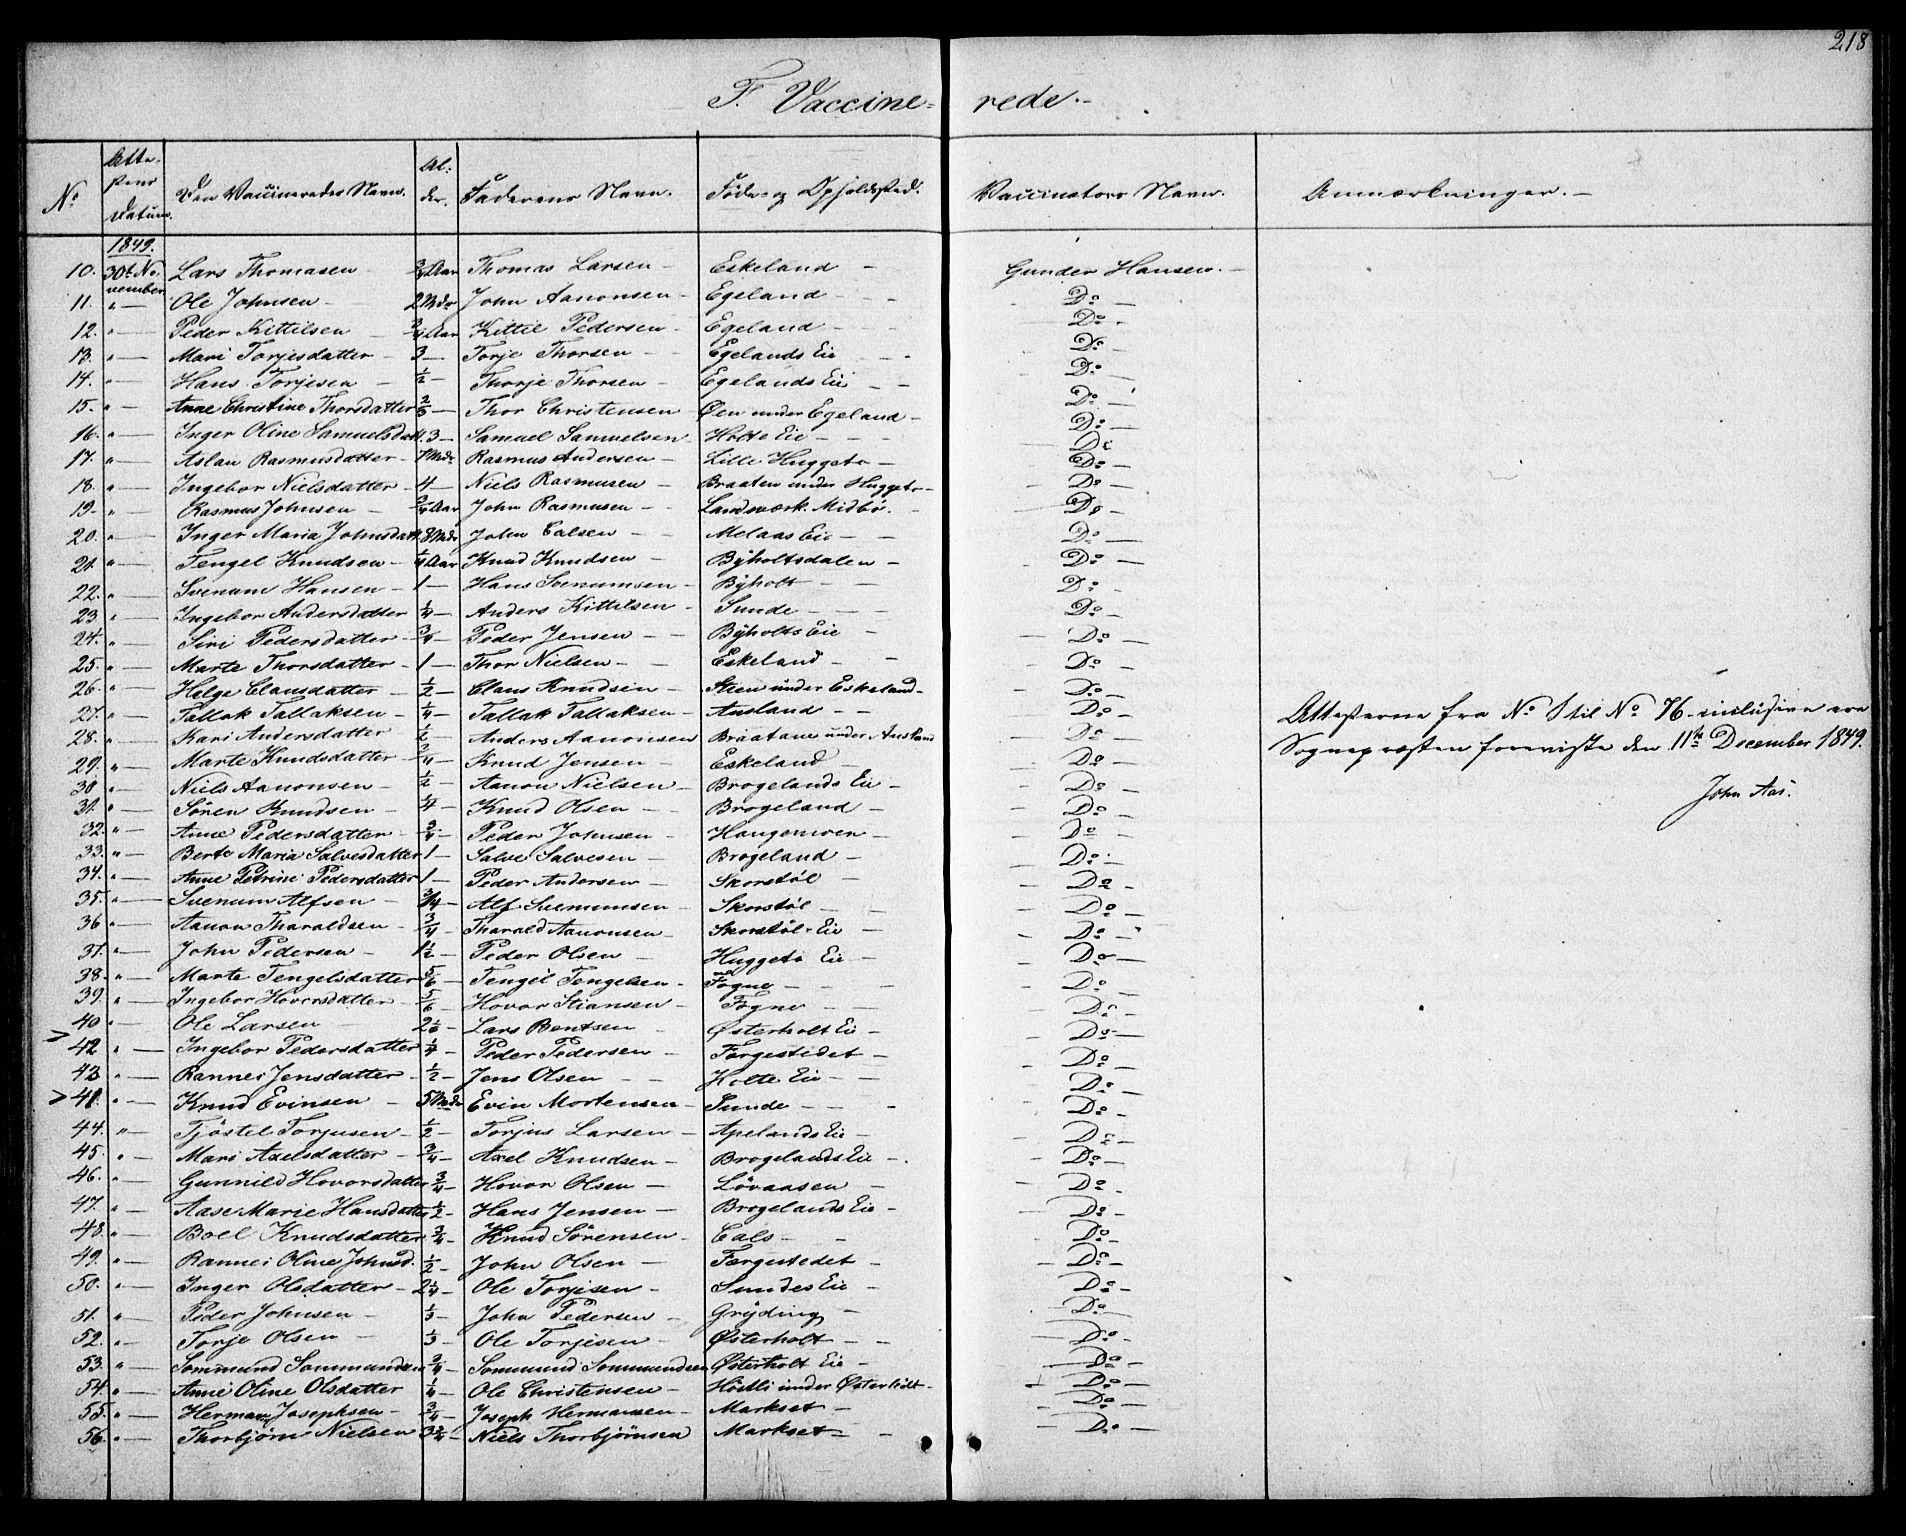 218
F. Vaccine- rede.-
No | Atte-stens Datum. | Den Vaccineredes Navn. | Al-der. | Faderens Navn. | Føde- og Opholdssted. | Vaccinators Navn. | Anmærkninger.-
1849.
10. 30te November Lars Thomasen - 3/4 Aar Thomas Larsen - Eskeland - Gunder Hansen.-
11. " Ole Johnsen - 2 Mdr John Aanonsen - Egeland - Do -
12. " Peder Kittilsen - 3/4 Aar Kittil Pedersen - Egeland - Do -
13. " Mari Torjesdatter - 3 - Torje Thorsen - Egelands Eie - Do -
14. " Hans Torjesen - 1/2 - Thorje Thorsen - Egelands Eie - Do -
15. " Anne Christine Thorsdatter 2/3 - Thor Christensen - Øen under Egeland - Do -
16. " Inger Oline Samuelsdatt. 3 - Samuel Samuelsen - Holte Eie - Do -
17. " Aslau Rasmusdatter - 7 Mdr Rasmus Andersen - Lille Huggeto - Do -
18. " Ingebor Nielsdatter - 4 - Niels Rasmusen - Braaten under Huggeto - Do -
19. " Rasmus Johnsen - 3/4 Aar John Rasmusen - Landsværk Midbö. - Do -
20. " Inger Maria Johnsdatt. 8 Mdr John Calsen - Melaas Eie - Do -
21. " Tengel Knudsen - 1/4 Aar Knud Knudsen - Byholtsdalen - Do -
22. " Svenum Hansen - 1 - Hans Svenumsen - Byholt - Do -
23 " Ingebor Andersdatter 1/4 - Anders Kittilsen - Sunde - Do -
24. " Siri Pedersdatter - 3/4 - Peder Jensen - Byholts Eie - Do -
25. " Marte Thorsdatter - 1 - Thor Nielsen - Eskeland - Do -
26. " Helge Clausdatter - 1/2 - Claus Knudsen - Stien under Eskeland - Do -
27. " Tallak Tallaksen - 1/4 - Tallak Tallaksen - Ausland - Do - Attesterne fra No 1 til No 76 inclusive ere
28. " Kari Andersdatter 1/2 - Anders Aanonsen Braatane under Ausland Do - Sognepræsten foreviste den 11te December 1849.
29. " Marte Knudsdatter - 3/4 - Knud Jensen - Eskeland - Do -
30 " Niels Aanonsen - 1/2 - Aanon Nielsen - Brogelands Eie - Do - John Aas.
31. " Sören Knudsen - 1/4 - Knud Olsen - Brogeland - Do -
32. " Anne Pedersdatter - 3/4 - Peder Johnsen - Do -
33. " Berte Maria Salvesdatter 1 - Salve Salvesen - Brogeland - Do -
34. " Anne Petrine Pedersdatter 1 - Peder Andersen - Skorstøl - Do -
35. " Svenum Alfsen - 3/4 - Alf Svenumsen - Skorstøl - Do -
36 " Aanon Tharaldsen - 3/4 - Tharald Aanonsen - Skorstøl-Eie - Do -
37. " John Pedersen - 1 1/2 - Peder Olsen - Huggeto Eie - Do -
38. " Marte Tengelsdatter 5/6 - Tengel Tengelsen - Fogne - Do -
39. " Ingebor Hovorsdatter - 5/6 - Hovor Stiansen - Fogne - Do -
40 " Ole Larsen - 2 1/6 - Lars Bentsen - Østerholt Eie - Do -
> 42 " Ingebor Pedersdatter 1/4 - Peder Pedersen - Færgestedet - Do -
43 " Rannei Jensdatter - 1/2 - Jens Olsen - Holte Eie - Do -
> 41. " Knud Evinsen - 5 Mdr Evin Mortensen - Sunde - Do -
44. " Tjöstel Torjusen - 1/2 - Torjus Larsen - Apelands Eie - Do -
45. " Mari Axelsdatter - 3/4 - Axel Knudsen - Brogelands Eie - Do -
46. " Gunnild Hovorsdatter 3/4 - Hovor Olsen - Lövaasen - Do -
47. " Aase Marie Hansdatter 1/2 - Hans Jensen - Brogelands Eie - Do -
48. " Boel Knudsdatter 3/4 - Knud Sörensen - Cals - Do -
49. " Rannei Oline Johnsd. 1/2 - John Olsen - Færgestedet - Do -
50. " Inger Olsdatter - 2 1/4 - Ole Torjesen - Sundes Eie - Do -
51. " Peder Johnsen - 1/3 - John Pedersen - Gryding - Do -
52. " Torje Olsen - 1/3 - Ole Torjesen - Østerholt - Do -
53. " Sommund Sommundsen 3/4 - Sommund Sommundsen Østerholt Eie - Do -
54. " Anne Oline Olsdatter 1/6 - Ole Christensen - under Østerholt - Do -
55. " Herman Josephsen - 3/4 - Joseph Hermansen - Markset - Do -
56. " Thorbjørn Nielsen 3 3/4 - Niels Thorbjørnsen Markset - Do -